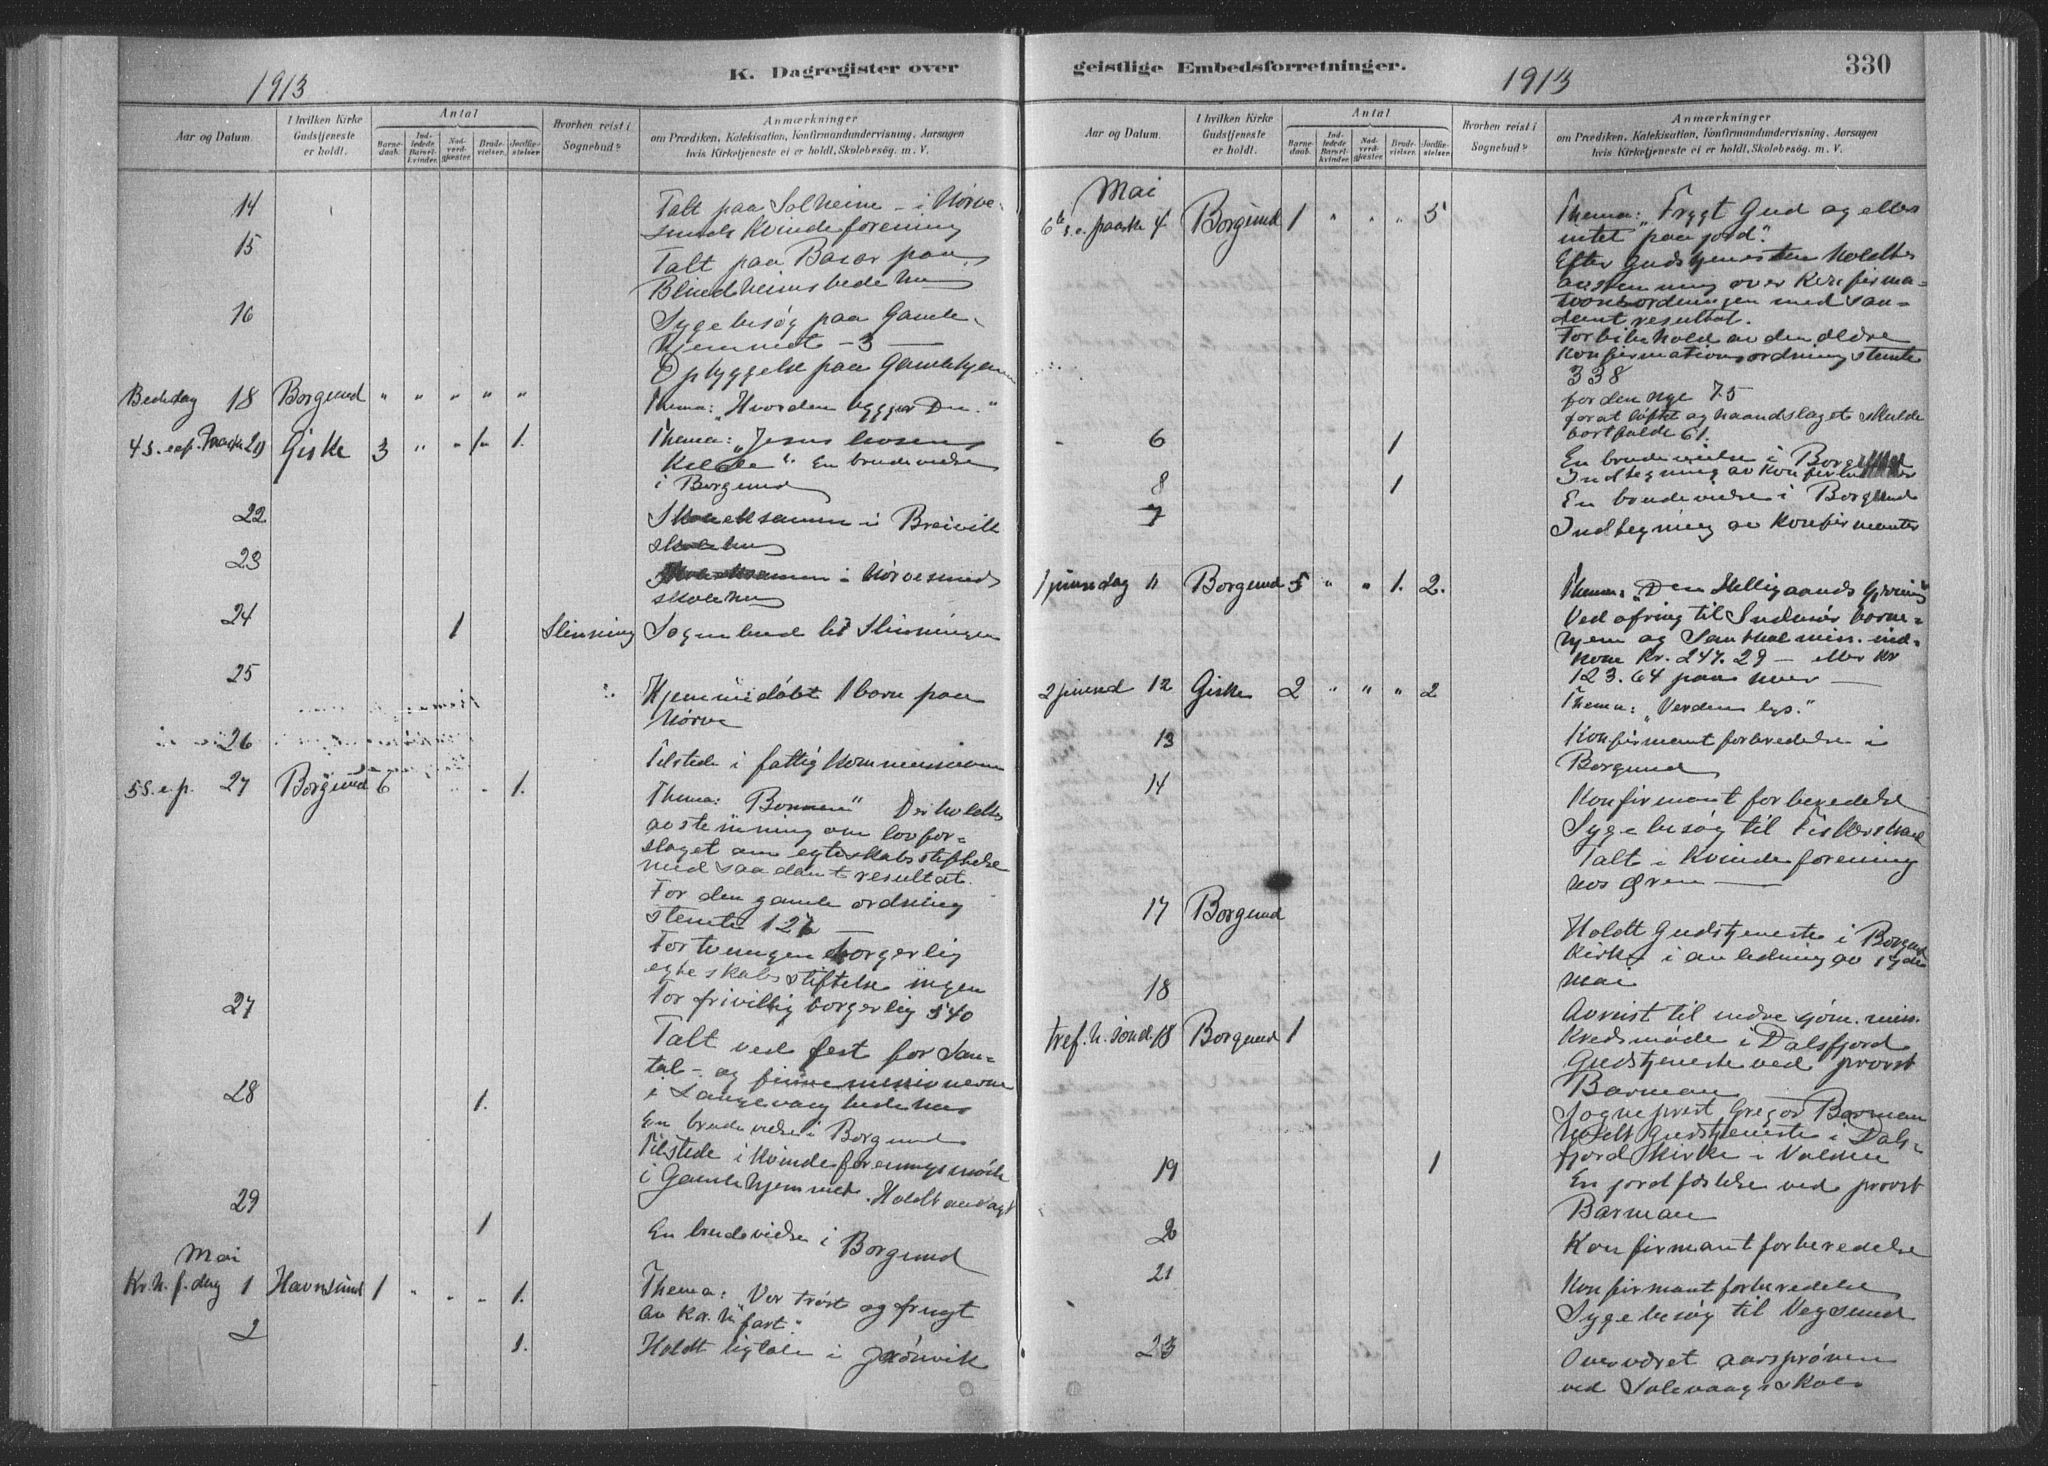 K. Dagregister over
1913
Aar og Datum.
I hvilken Kirke Gudstjeneste er holdt.
Antal
Barnedaab.
Indledede Barselkvinder.
Nadverdgjæster.
Brudevielser.
Jordfæstelser.
Hvorhen reist i Sognebud?
Anmærkninger
om Prædiken, Katekisation, Konfirmandundervisning, Aarsagen
hvis Kirketjeneste ei er holdt, Skolebesøg. m. V.
14 Talt paa Solheim - i Nørve-
sunds Kvindeforening
15 Talt paa Basar paa
Blindheims bedehus
16 Sygebesøg paa Gamle-
hjemmet - 3 -
Opbyggelse paa Gamlehjem
Bededag 18 Borgund " " " " " Thema: "Hvorden bygger Du."
4 S. eft. Paaske 20 Giske 3 " " 1 1. Thema: "Jesus livsens
Kilde". En brudevielse
i Borgund
22 Skoleeksamen i Breivik
skolehus
23 Skoleeksamen i Nørvesunds
skolehus
24 1 Slinning Sognebud til Slinningen
25 Hjemmedøbt 1 barn paa
Nørve
26 Tilstede i fattigkommissionen
5 S. e. p. 27 Borgund 6 " 1. Thema: "Bønnen" Der holdtes
avstemning om lovfor-
slaget om egteskabsstiftelse
med saadant resultat.
For den gamle ordning
stemte 127 -
For tvungen borgerlig
egteskabsstiftelse ingen
For frivillig borgerlig 540
27 Talt ved fest for San-
tal- og finnemissionerne
i Langevaag bedehus
28 1. En brudevielse i Borgund
Tilstede i Kvindeforeningsmøde
i Gamlehjemmet. Holdt andagt
29 1 En brudevielse i Borgund
Mai
Kr. h. f. dag 1 Havnsund 1 " " " 1. Thema: "Vor trøst og frugt
av Kr. h. fart."
2 1. Holdt ligtale i Grønvik
geistlige Embedsforretninger.
1913
330
Aar og Datum.
I hvilken Kirke Gudstjeneste er holdt.
Antal
Barnedaab.
Indledede Barselkvinder.
Nadverdgjæster.
Brudevielser.
Jordfæstelser.
Hvorhen reist i Sognebud?
Anmærkninger
om Prædiken, Katekisation, Konfirmandundervisning, Aarsagen
hvis Kirketjeneste ei er holdt, Skolebesøg. m. V.
Mai
6te s. e. paaske 4 Borgund 1 " " " 5 Thema: "Frygt Gud og ellers
intet paa jord".
Efter Gudstjenesten holdtes
avstemning over Konfirma-
tionsordningen med saa-
dant resultat.
For bibehold av den ældre
Konfirmationsordning stemte
338
for den nye 75
for at løftet og haandslaget skulde
bortfalde 61.
6 1 En brudevielse i Borgund
Indtegning av Konfirmanter
8 1 En brudevielse i Borgund
7 Indtegning av Konfirmanter
1 pinsedag 11 Borgund 5 " " 1. 2. Thema: "Den Helligaands Gjerning"
Ved ofring til
hjem og Santhalmiss. ind-
kom Kr. 247.29 - eller Kr
123.64 paa hver -
2 pinsed 12 Giske 2 " " " 2 Thema: "Verdens lys."
13 Konfirmantforberedelse i
Borgund
14 Konfirmantforberedelse
Sygebesøg til
Talt i Kvindeforening
hos
17 Borgund Holdt Gudstjeneste i Borgund
Kirke i anledning av 17de
mai
18 Avreist til indre sjøm. miss.
Kredsmøde i Dalsfjord
Tref. h. sønd. 18 Borgund 1 Gudstjeneste ved provst
Barman
Sogneprest Gregor Barman
holdt Gudstjeneste i Dals-
fjord Kirke i Volden
19 1 En jordfæstelse ved provst
Barman
20 Konfirmantforberedelse
21 Konfirmantforberedelse
Sygebesøg til Vegsund
23 Overværet aarsprøven
ved Solevaags skole